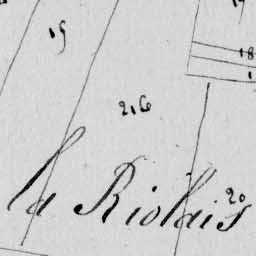 19
18
216
20
la Riolais